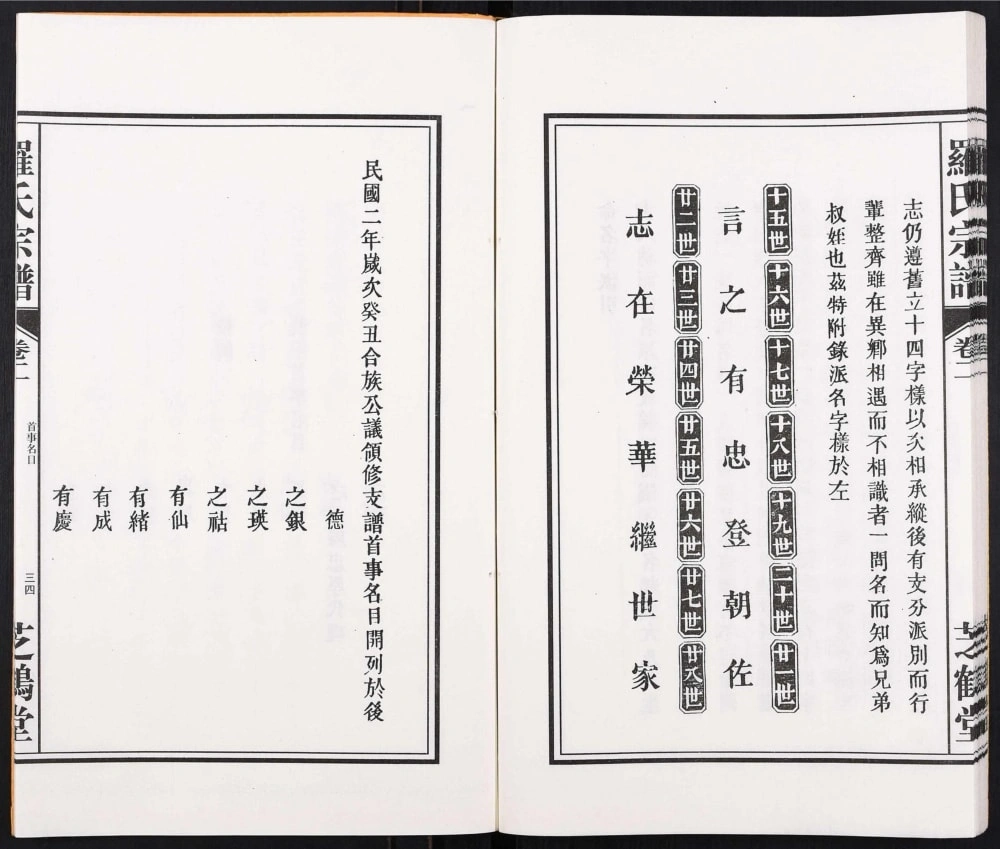 羅氏宗譜
卷二
芝鶴堂
志仍遵舊立十四字樣以次相承縱後有支分派別而行
輩整齊雖在異鄉相遇而不相識者一問名而知爲兄弟
叔姪也茲特附錄派名字樣於左
十五世 十六世 十七世 十八世 十九世 二十世 廿一世
言之有忠登朝佐
廿二世 廿三世 廿四世 廿五世 廿六世 廿七世 廿八世
志在榮華繼世家
民國二年歲次癸丑合族公議領修支譜首事名目開列於後
德
之銀
之瑛
之祜
有仙
有緒
有成
有慶
羅氏宗譜
卷二
首事名目
三四
芝鶴堂